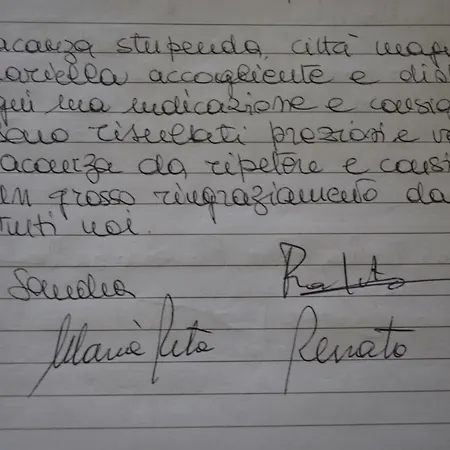 acanza stupenda, città mag
Mariella accogliente e dis
gni sua indicazione e consig
sono risultati preziosi e v
acanza da ripetere e consi
un grosso ringraziamento da
tutti noi.
Sandra
Maria Rita Renato